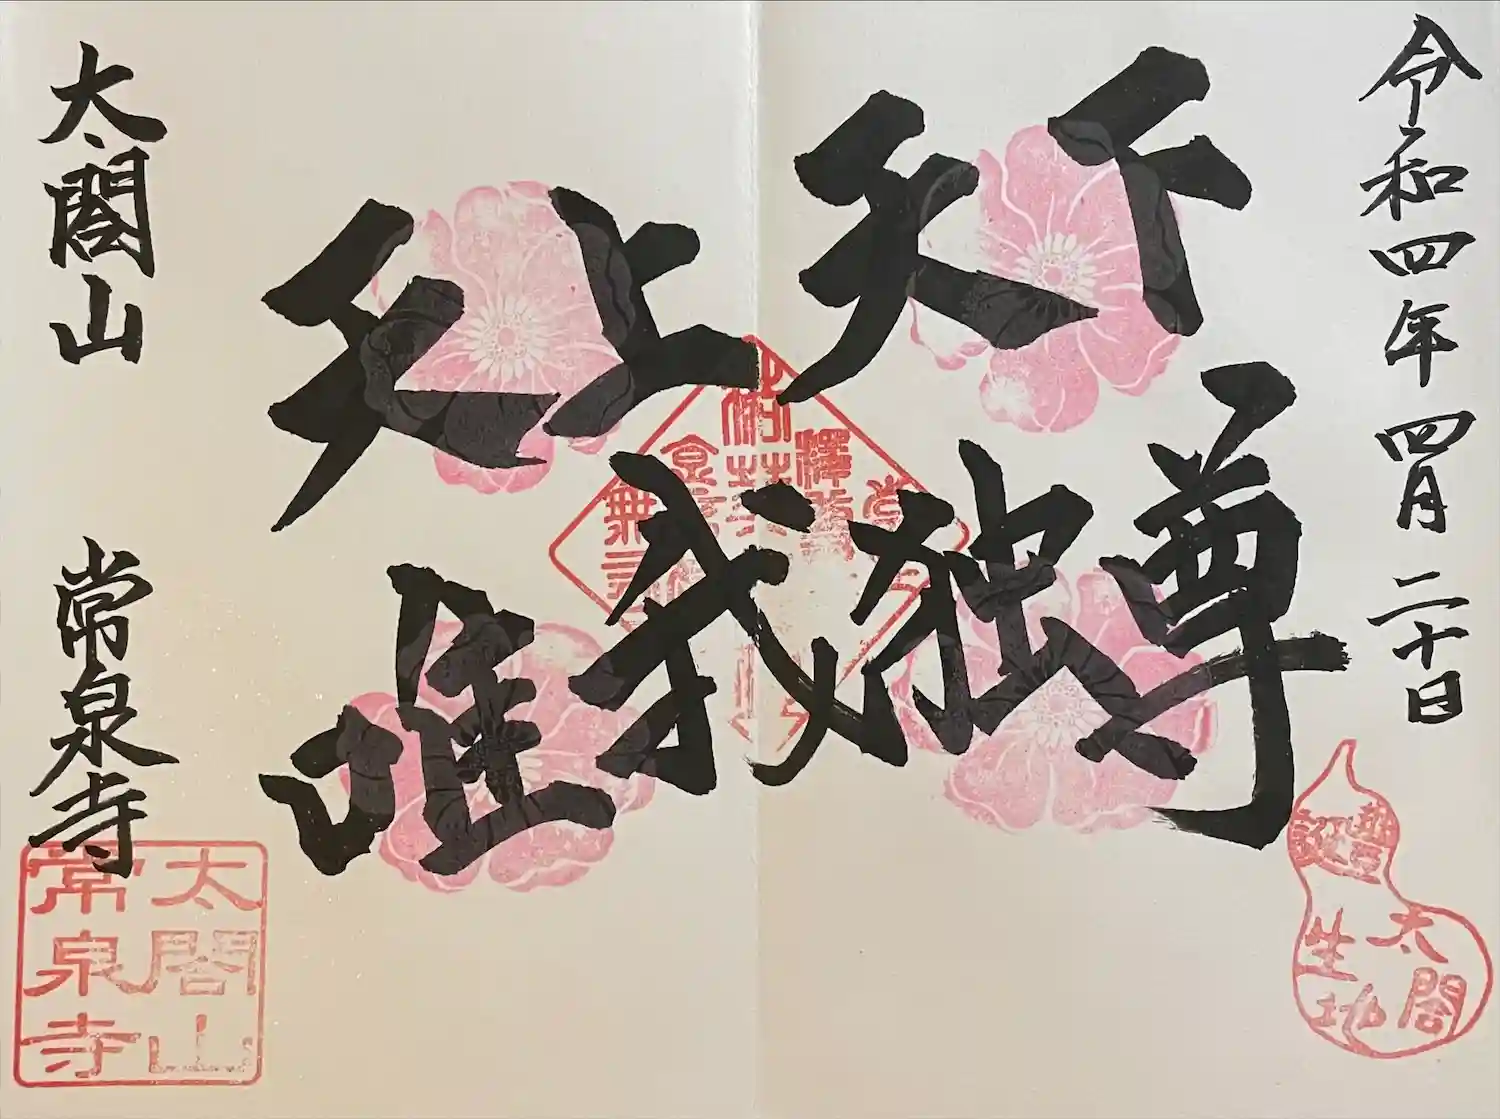 令和四年四月二十日
天上天下
唯我独尊
太閤山 常泉寺
豐太閤
誕生地
太閤山
常泉寺